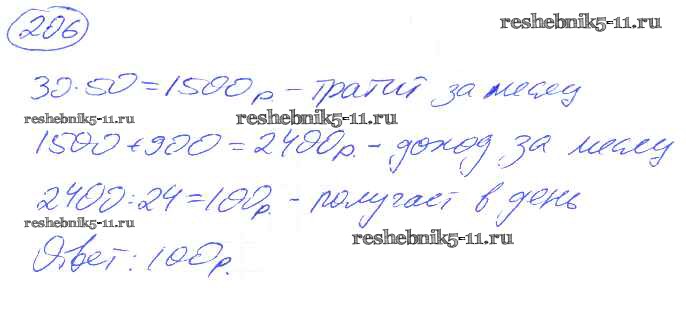 206
reshebnik5-11.ru
30·50=1500р. – тратит за месяц
reshebnik5-11.ru reshebnik5-11.ru
1500+900=2400р. – доход за месяц
2400:24=100р. – получает в день
reshebnik5-11.ru
reshebnik5-11.ru
Ответ: 100р.